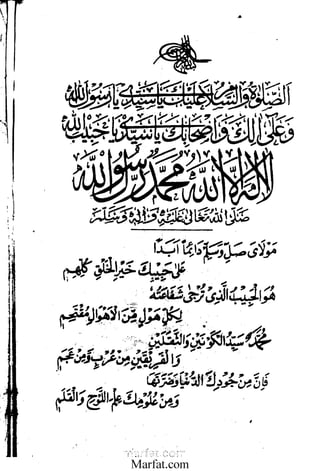 الصَّلوٰةُ وَالسَّلَامُ عَلَيْكَ يَا سَيِّدِي يَا رَسُولَ اللهِ
وَعَلٰى اٰلِكَ وَاَصْحَابِكَ يَا سَيِّدِي يَا حَبِيْبَ اللهِ
لَا اِلٰهَ اِلَّا اللهُ مُحَمَّدٌ رَّسُولُ اللهِ
صَلَّى اللهُ تَعَالٰى عَلَيْهِ وَاٰلِهٖ وَسَلَّمَ
مَوْلَايَ صَلِّ وَسَلِّمْ دَائِمًا اَبَدًا
عَلٰى حَبِيْبِكَ خَيْرِ الْخَلْقِ كُلِّهِمِ
هُوَ الْحَبِيْبُ الَّذِيْ تُرْجٰى شَفَاعَتُهُ
لِكُلِّ هَوْلٍ مِّنَ الْاَهْوَالِ مُقْتَحِمِ
مُحَمَّدٌ سَيِّدُ الْكَوْنَيْنِ وَالثَّقَلَيْنِ
وَالْفَرِيْقَيْنِ مِنْ عُرْبٍ وَّمِنْ عَجَمِ
فَاِنَّ مِنْ جُوْدِكَ الدُّنْيَا وَضَرَّتَهَا
وَمِنْ عُلُوْمِكَ عِلْمَ اللَّوْحِ وَالْقَلَمِ
Marfat.com
Marfat.com